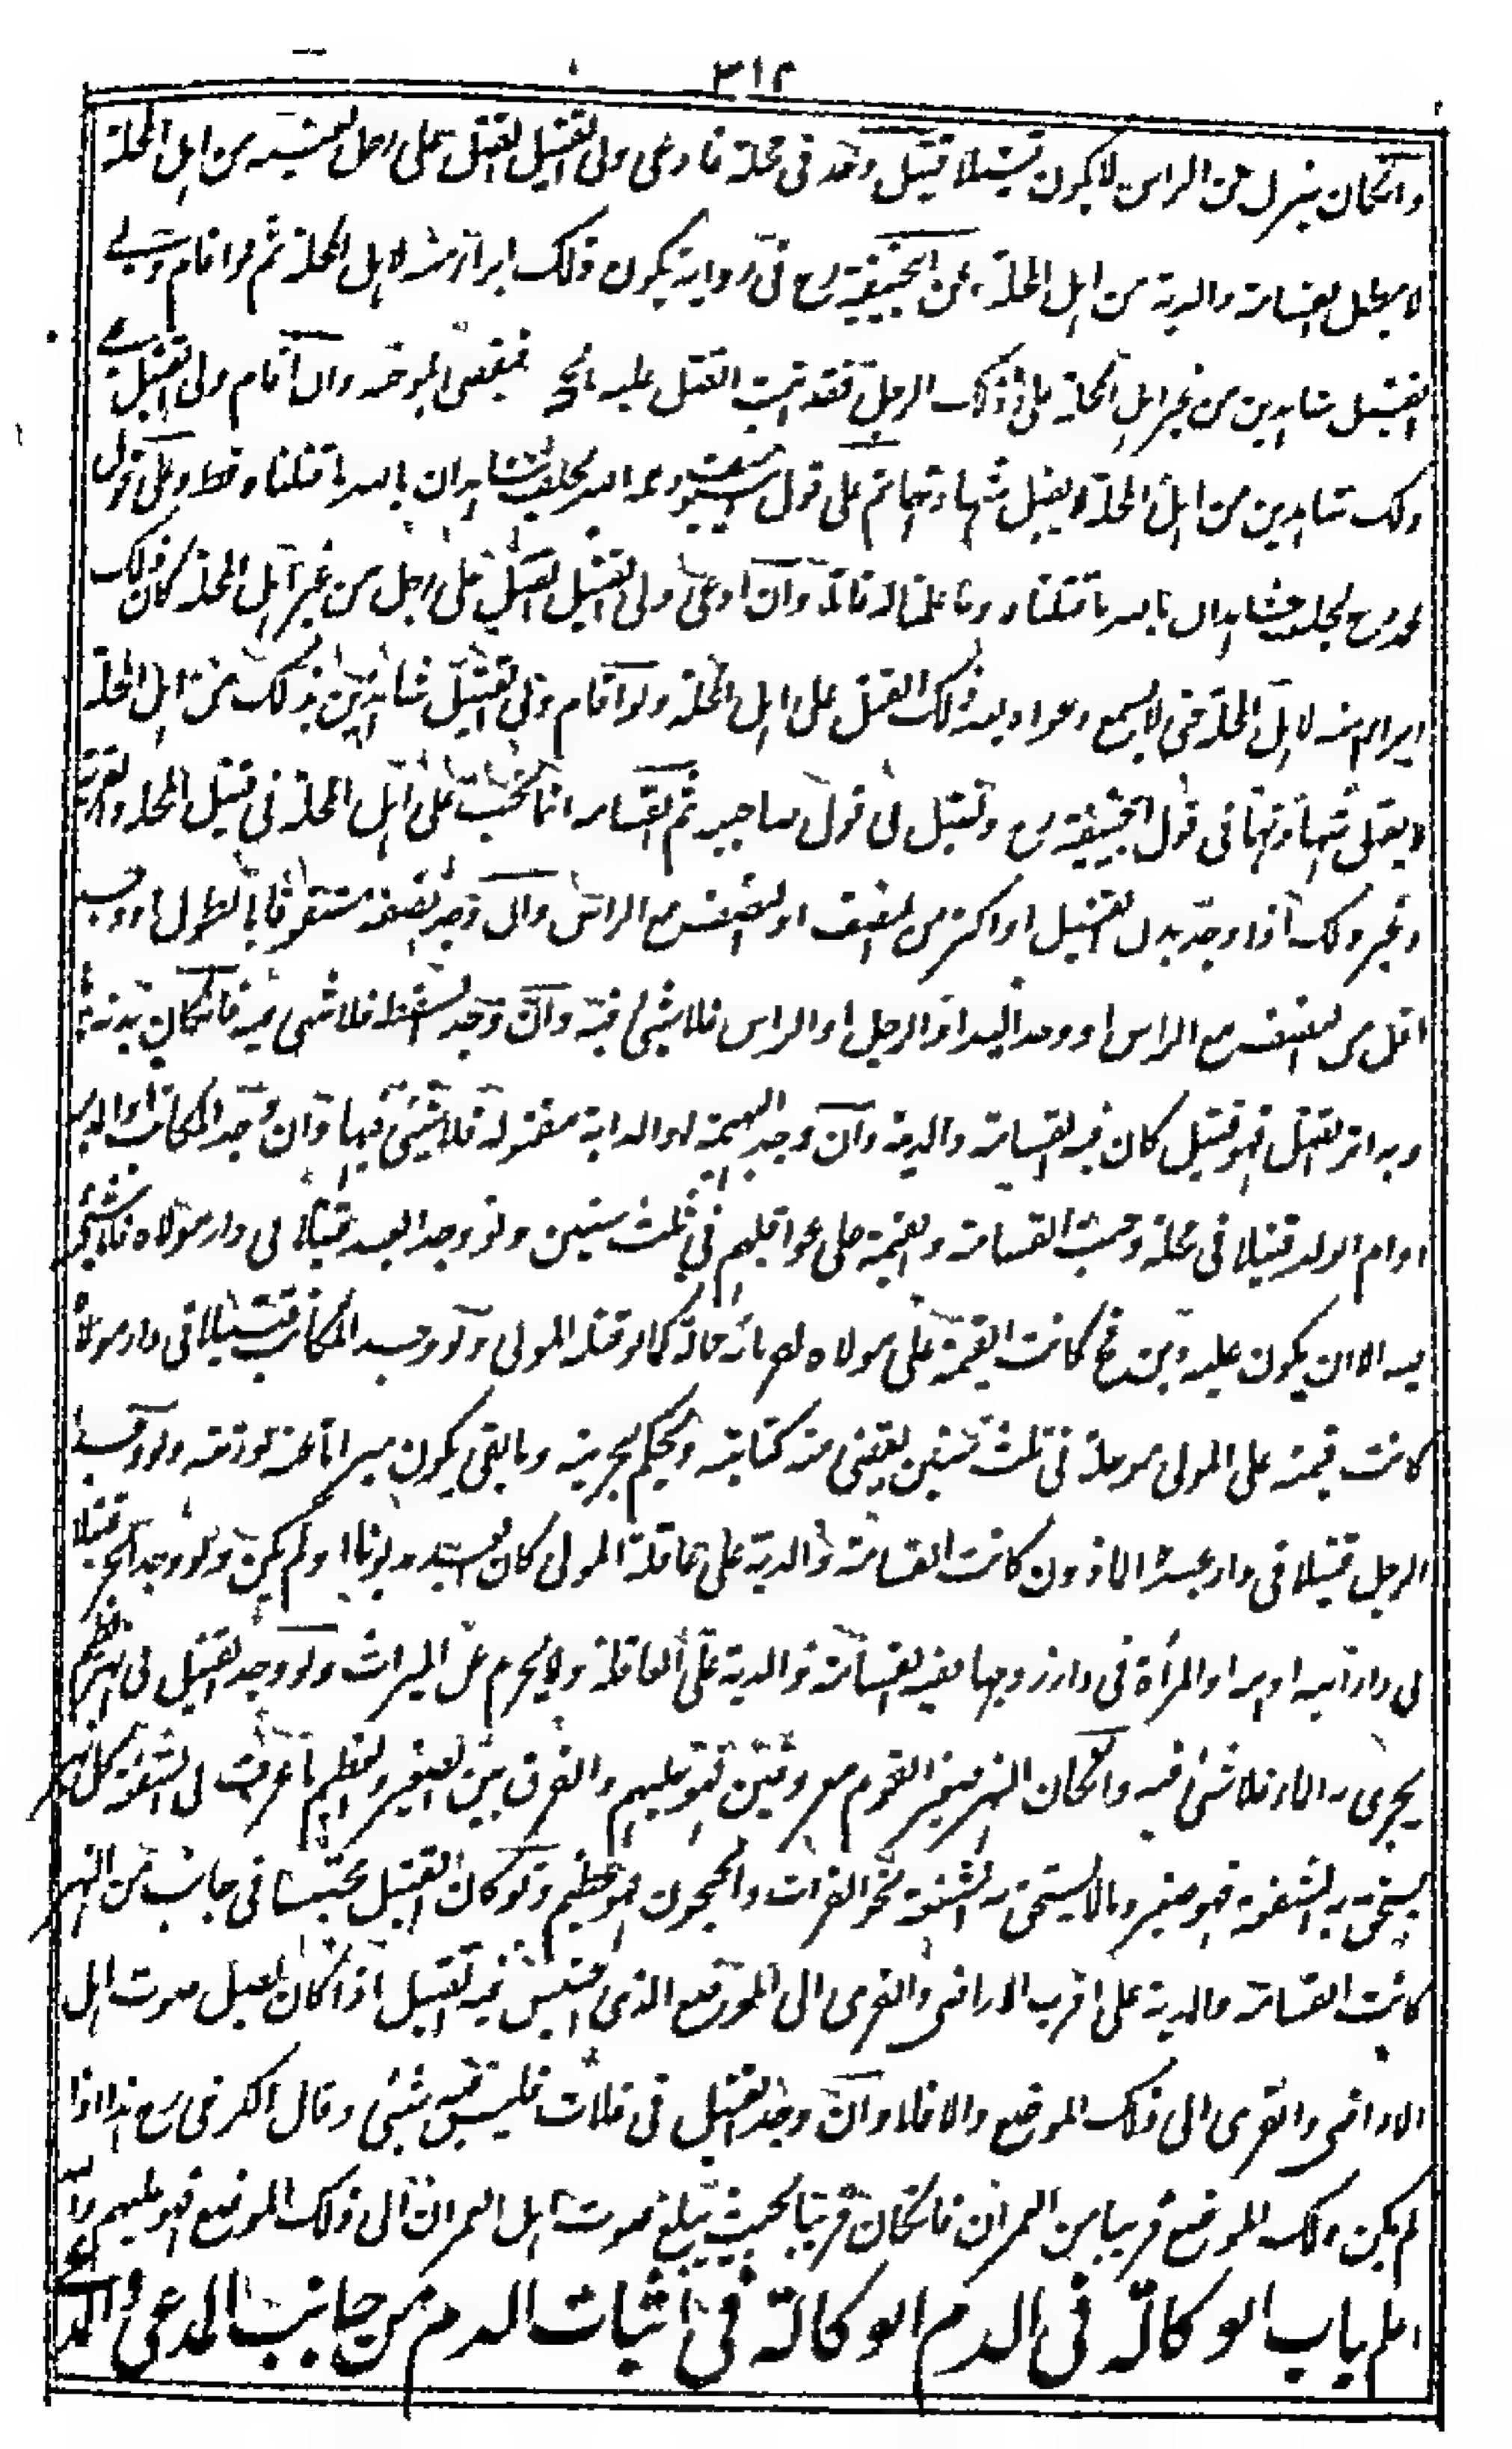 ٣١٢
وانكان ينزل من الراس لا يكون قتيلا قتيل وجد في محلة فادعى ولي القتيل القتل على رجل بعينه من اهل المحلة
لا يبطل القسامة والدية من اهل المحلة وعن ابيحنيفة رح في رواية يكون ذلك ابراء منه لاهل المحلة ثم لو اقام ولي
القتيل شاهدين من غير اهل المحلة على ذلك الرجل فقد ثبت القتل عليه فيقضى بموجبه وان اقام ولي القتيل
ذلك شاهدين من اهل المحلة لا يقبل شهادتهما ثم على قول ابي يوسف رحمه الله يحلف الشاهدان بالله ما قتلناه فقط وعلى قول
محمد رح يحلف الشاهدان بالله ما قتلناه وما علمنا له قاتلا وان ادعى ولي القتيل القتل على رجل من غير اهل المحلة كان ذلك
ابراء منه لاهل المحلة حتى لا يسمع دعواه بعد ذلك القتل على اهل المحلة ولو اقام ولي القتيل شاهدين بذلك من اهل المحلة
لا يقبل شهادتهما في قول ابيحنيفة رح وتقبل في قول صاحبيه ثم القسامة انما تجب على اهل المحلة في قتيل المحلة
وغير ذلك اذا وجد بدن القتيل او اكثر من النصف او النصف مع الراس وان وجد نصفه مشقوقا بالطول او وجد
اقل من النصف مع الراس او وجد اليد او الرجل او الراس فلا شيء فيه وان وجد السقط فلا شيء فيه فانكان بدنه تاما
وبه اثر القتل فهو قتيل كان فيه القسامة والدية وان وجد البهيمة او الدابة مقتولة فلا شيء فيها وان وجد المكاتب او المدبر
او ام الولد قتيلا في محلة وجبت القسامة والقيمة على عواقلهم في ثلث سنين ولو وجد العبد قتيلا في دار مولاه فلا شيء
فيه الا ان يكون عليه دين فح كانت القيمة على مولاه لغرمائه حالة كما لو قتله المولى ولو وجد المكاتب قتيلا في دار مولاه
كانت قيمته على المولى مؤجلة في ثلث سنين يقضى منه كتابته ويحكم بحريته وما بقي يكون ميراثا عنه لورثته ولو وجد
الرجل قتيلا في دار عبده الماذون كانت القسامة والدية على عاقلة المولى كان العبد مديونا او لم يكن ولو وجد الحر قتيلا
في دار ابيه او امه او المرأة في دار زوجها ففيه القسامة والدية على العاقلة ولا يحرم عن الميراث ولو وجد القتيل في النهر العظيم
يجرى به الماء فلا شيء فيه وانكان النهر صغير القوم معروفين فهو عليهم والفرق بين الصغير والعظيم ما عرفت في الشفعة كل نهر
يستحق به الشفعة فهو صغير وما لا يستحق به الشفعة نحو الفرات والجيحون فهو عظيم ولو كان القتيل محتبسا في جانب من النهر
كانت القسامة والدية على اقرب الاراضى والقرى الى الموضع الذي احتبس فيه القتيل اذا كان يصل صوت اهل
الاراضى والقرى الى ذلك الموضع والا فلا وان وجد القتيل في فلات فليس فيه شيء وقال الكرخي رح هذا اذا
لم يكن ذلك الموضع قريبا من العمران فانكان قريبا بحيث يبلغ صوت اهل العمران الى ذلك الموضع فهو عليهم والله
اعلم باب الوكالة في الدم الوكالة في اثبات الدم من جانب المدعي